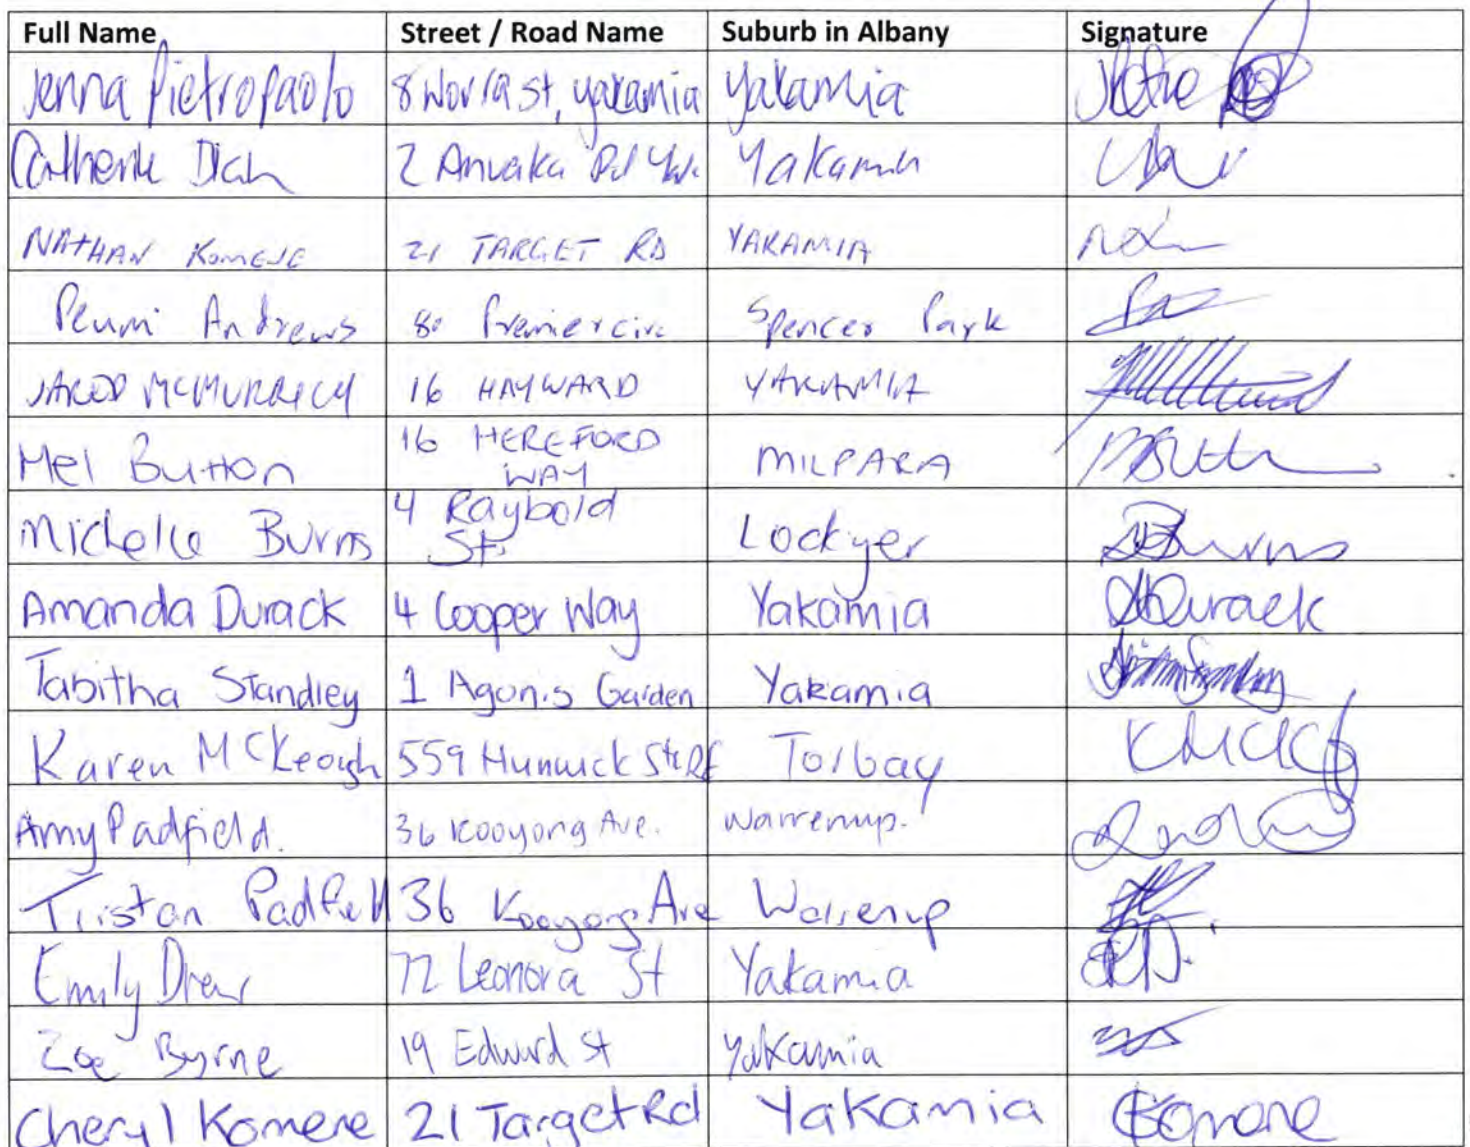 Full Name Street / Road Name Suburb in Albany Signature
Jenna Pietropaolo 8 Worra st, yakamia Yakamia
Catherine 2 Anuaka Rd Yak. Yakamia
NATHAN KOMENE 21 TARGET RD YAKAMIA
Peumi Andrews 80 Premier circ Spencer Park
JAROD MCMURRICH 16 HAYWARD YAKAMIA
Mel Button 16 HEREFORD WAY MILPARA
Michelle Burns 4 Raybold St. Lockyer Burns
Amanda Durack 4 Cooper Way Yakamia Durack
Tabitha Standley 1 Agonis Garden Yakamia
Karen McKeough 559 Hunwick Sth Rd Torbay
Amy Padfield. 36 Kooyong Ave. Warrenup.
Tristan Padfield 36 Kooyong Ave Warrenup
Emily Drew 72 Leonora St Yakamia
Zoe Byrne 19 Edward St Yakamia
Cheryl Komene 21 Target Rd Yakamia Komene